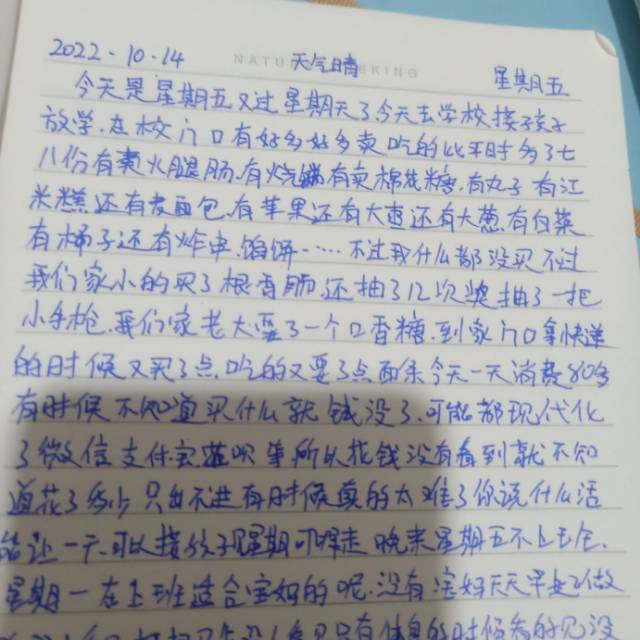 2022.10.14 天气晴 星期五
NATU EKING
今天是星期五又过星期天了今天去学校接孩子
放学.在校门口有好多好多卖吃的比平时多了七
八份有煮火腿肠.有烧 有卖棉花糖.有丸子有江
米糕还有麦面包.有苹果还有大枣还有大葱.有白菜
有柿子还有炸串.馅饼……不过我什么都没买不过
我们家小的买了根香肠还抽了12次奖抽了一把
小手枪.我们家老大要了一个口香糖.到家门口拿快递
的时候又买了点吃的又要了点面条今天一天消费80多
有时候不知道买什么就钱没了.可能都现代化
了微信支付 所以花钱没有看到就不知
道花了多少只出不进有时候真的太难了你说什么活
能让一天可以接孩子 星期 晚来星期五不上
星期一在上班适合宝妈的呢.没有宝妈天天早起做